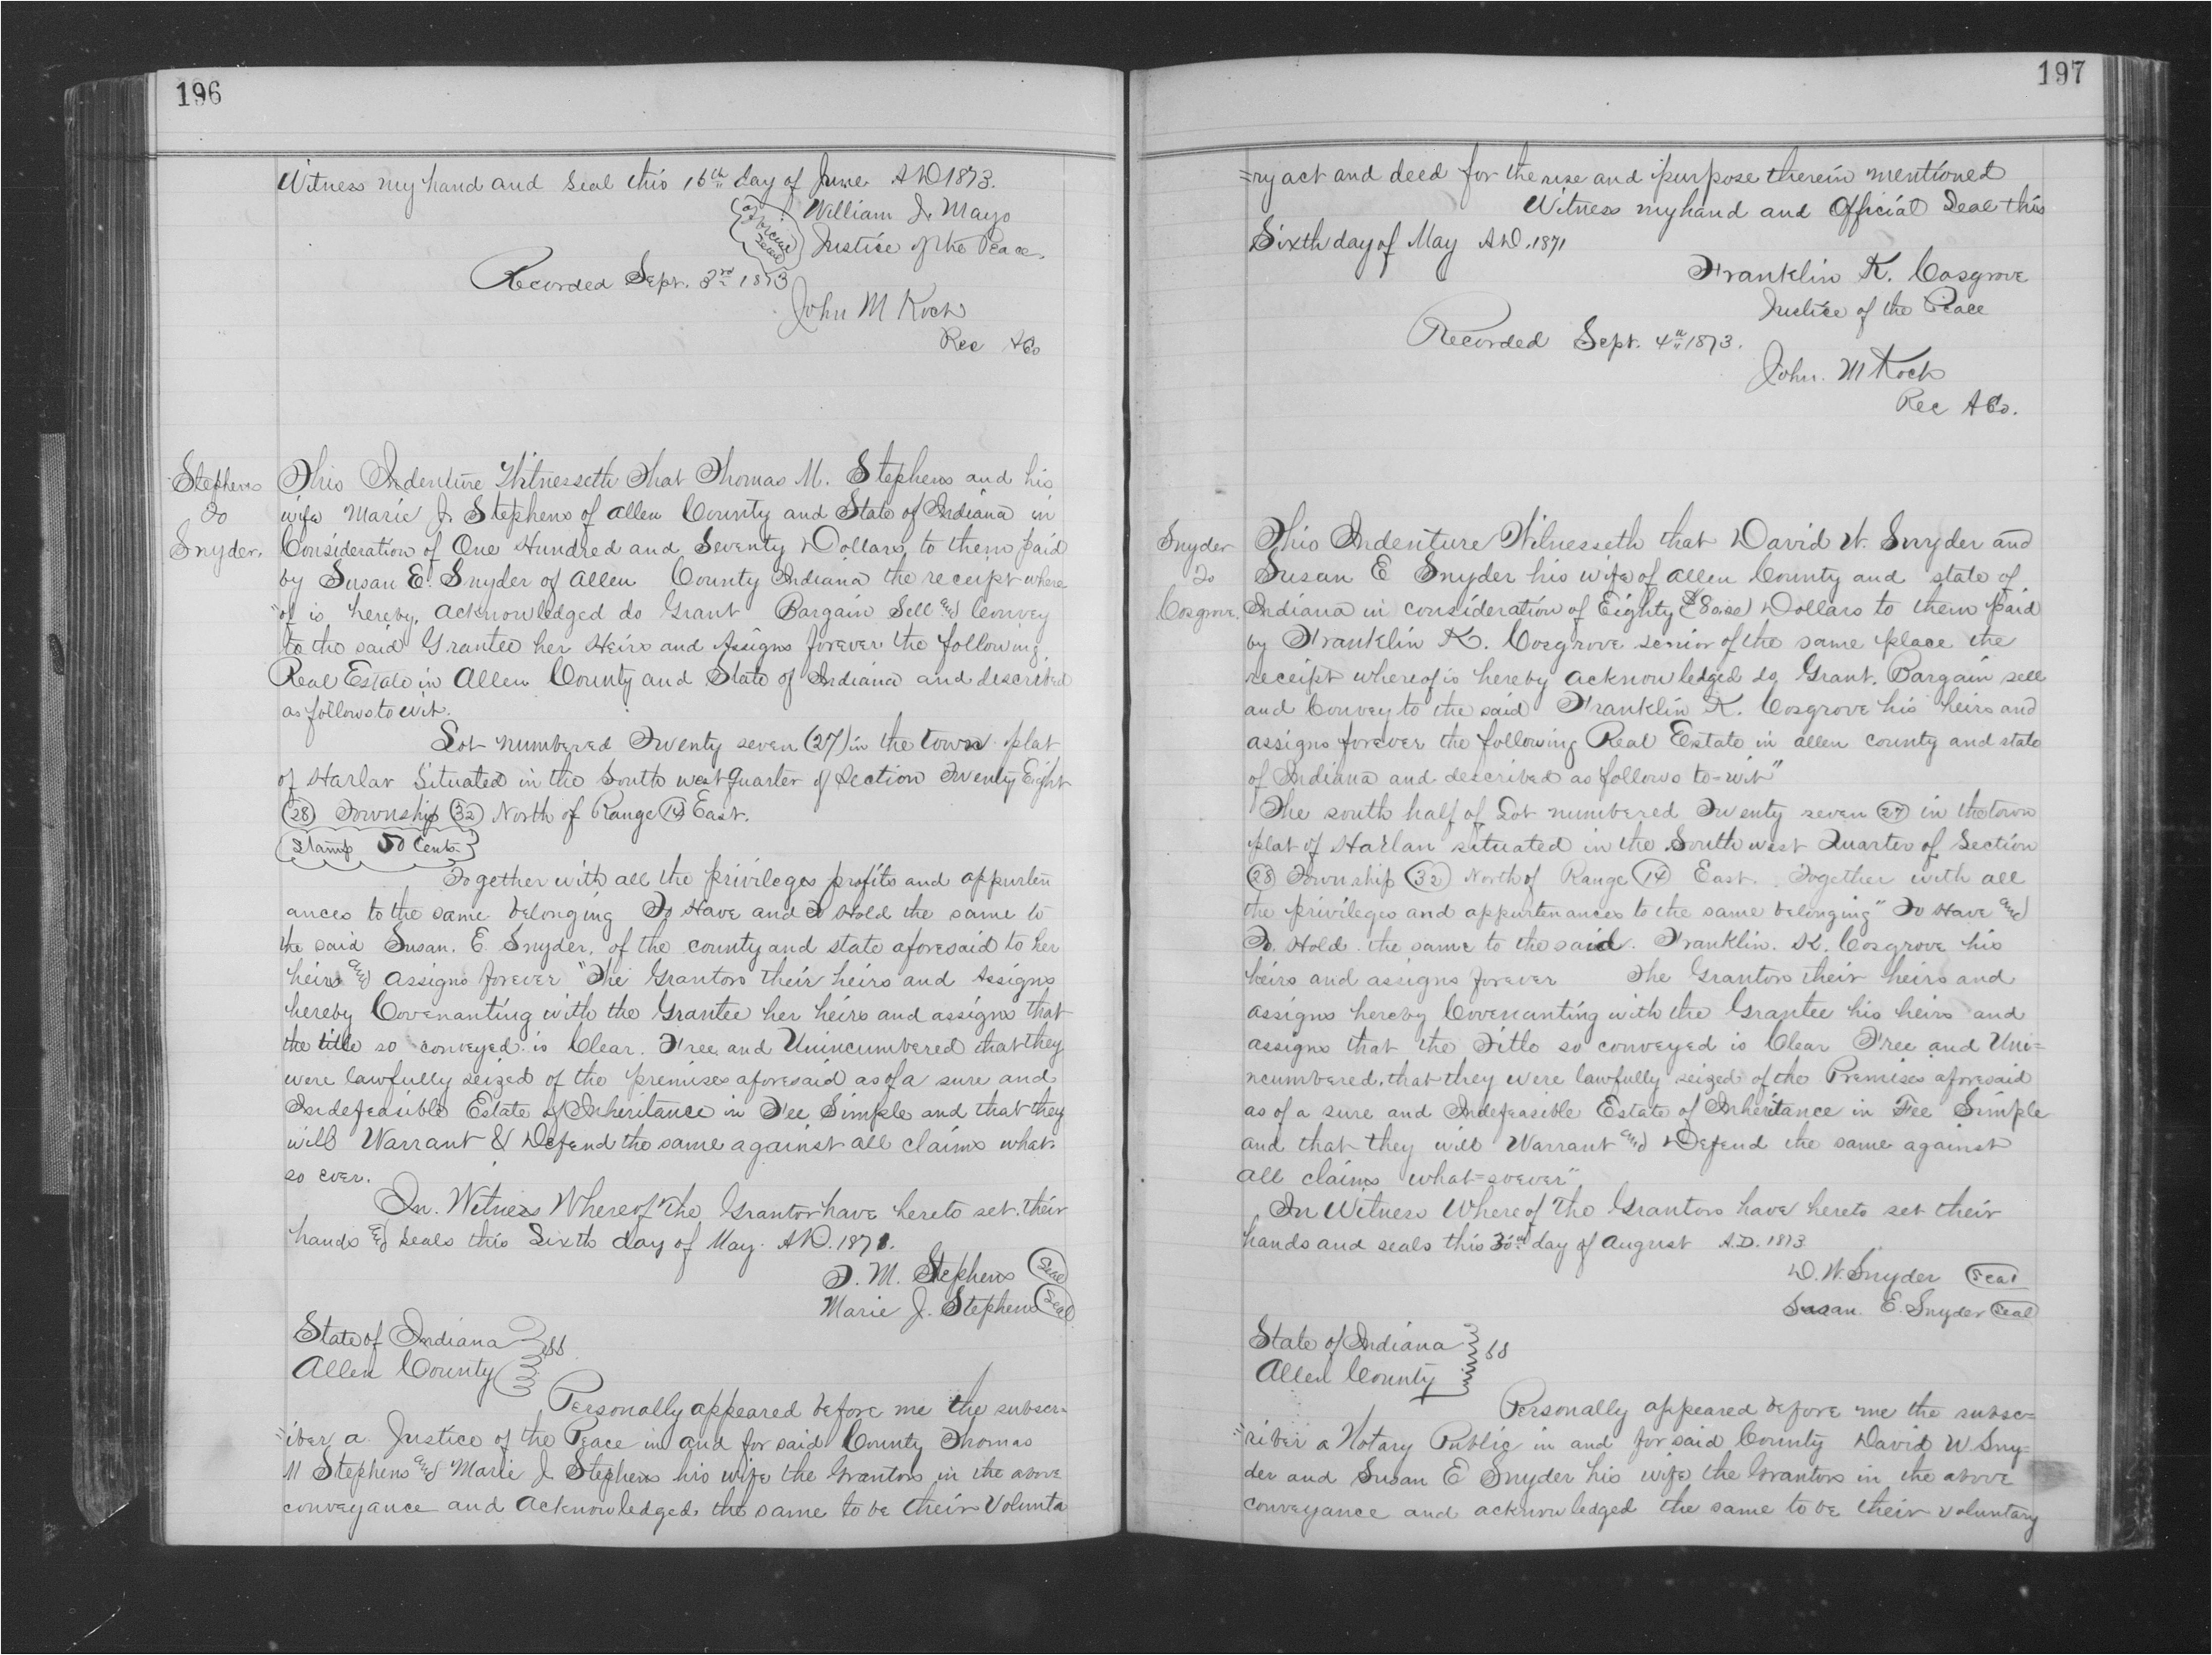 196
Witness my hand and Seal this 16th day of June AD 1873.
William J. Mayo
Justice of the Peace.
Recorded Sept. 3rd 1873
John M Koch
Rec A Co
Stephens
To
Snyder.
This Indenture Witnesseth That Thomas M. Stephens and his
wife Marie J. Stephens of Allen County and State of Indiana in
Consideration of One Hundred and Seventy Dollars to them paid
by Susan E. Snyder of Allen County Indiana the receipt where
"of is hereby, acknowledged do Grant Bargain Sell and Convey
to the said Grantee her Heirs and Assigns forever the following
Real Estate in Allen County and State of Indiana and described
as follows to wit.
Lot numbered Twenty seven (27) in the town plat
of Harlan Situated in the South west quarter of Section Twenty Eight
(28) Township (32) North of Range (14) East.
Stamp 50 Cents
Together with all the privileges profits and appurten
ances to the same belonging To Have and to Hold the same to
the said Susan. E. Snyder. of the county and state aforesaid to her
heirs and assigns forever "The Grantors their heirs and Assigns
hereby Covenanting with the Grantee her heirs and assigns that
the title so conveyed is Clear. Free and Unincumbered that they
were lawfully seized of the premises aforesaid as of a sure and
Indefeasible Estate of Inheritance in Fee Simple and that they
will Warrant & Defend the same against all claims what
so ever.
In. Witness Whereof The Grantor have hereto set their
hands and seals this Sixth day of May. AD. 1871.
T. M. Stephens Seal
Marie J. Stephens Seal
State of Indiana
Allen County } SS
Personally appeared before me the subscr=
=iber a Justice of the Peace in and for said County Thomas
M Stephens and Marie J. Stephens his wife the Grantors in the above
conveyance and acknowledged the same to be their Volunta
197
=ry act and deed for the use and purpose therein mentioned
Witness my hand and Official Seal this
Sixth day of May AD. 1871
Franklin K. Cosgrove
Justice of the Peace
Recorded Sept. 4th 1873.
John. M Koch
Rec A Co.
Snyder
To
Cosgrove.
This Indenture Witnesseth that David W. Snyder and
Susan E Snyder his wife of Allen County and state of
Indiana in consideration of Eighty ($80.00) Dollars to them paid
by Franklin K. Cosgrove senior of the same place the
receipt whereof is hereby acknowledged do Grant. Bargain sell
and Convey to the said Franklin K. Cosgrove his heirs and
assigns forever the following Real Estate in allen county and state
of Indiana and described as follows to=wit"
The south half of Lot numbered Twenty seven (27) in the town
plat of Harlan situated in the South west Quarter of Section
(28) Township (32) North of Range (14) East. Together with all
the privileges and appurtenances to the same belonging" To Have and
To. Hold the same to the said. Franklin. K. Cosgrove his
heirs and assigns forever The Grantors their heirs and
assigns hereby Covenanting with the Grantee his heirs and
assigns that the Title so conveyed is Clear Free and Uni=
ncumbered. that they were lawfully seized of the Premises aforesaid
as of a sure and Indefeasible Estate of Inheritance in Fee Simple
and that they will Warrant and Defend the same against
all claims what=soever"
In Witness Whereof The Grantors have hereto set their
hands and seals this 30th day of August A.D. 1873
D. W. Snyder Seal
Susan. E. Snyder Seal
State of Indiana
Allen County } SS
Personally appeared before me the subsc=
=riber a Notary Public in and for said County David W Sny=
der and Susan E Snyder his wife the Grantors in the above
conveyance and acknowledged the same to be their voluntary